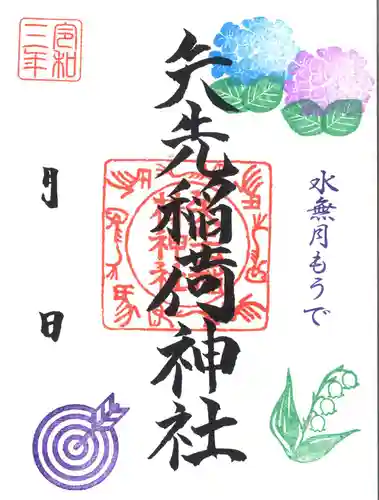 水無月もうで
矢先稲荷神社
令和三年
月 日